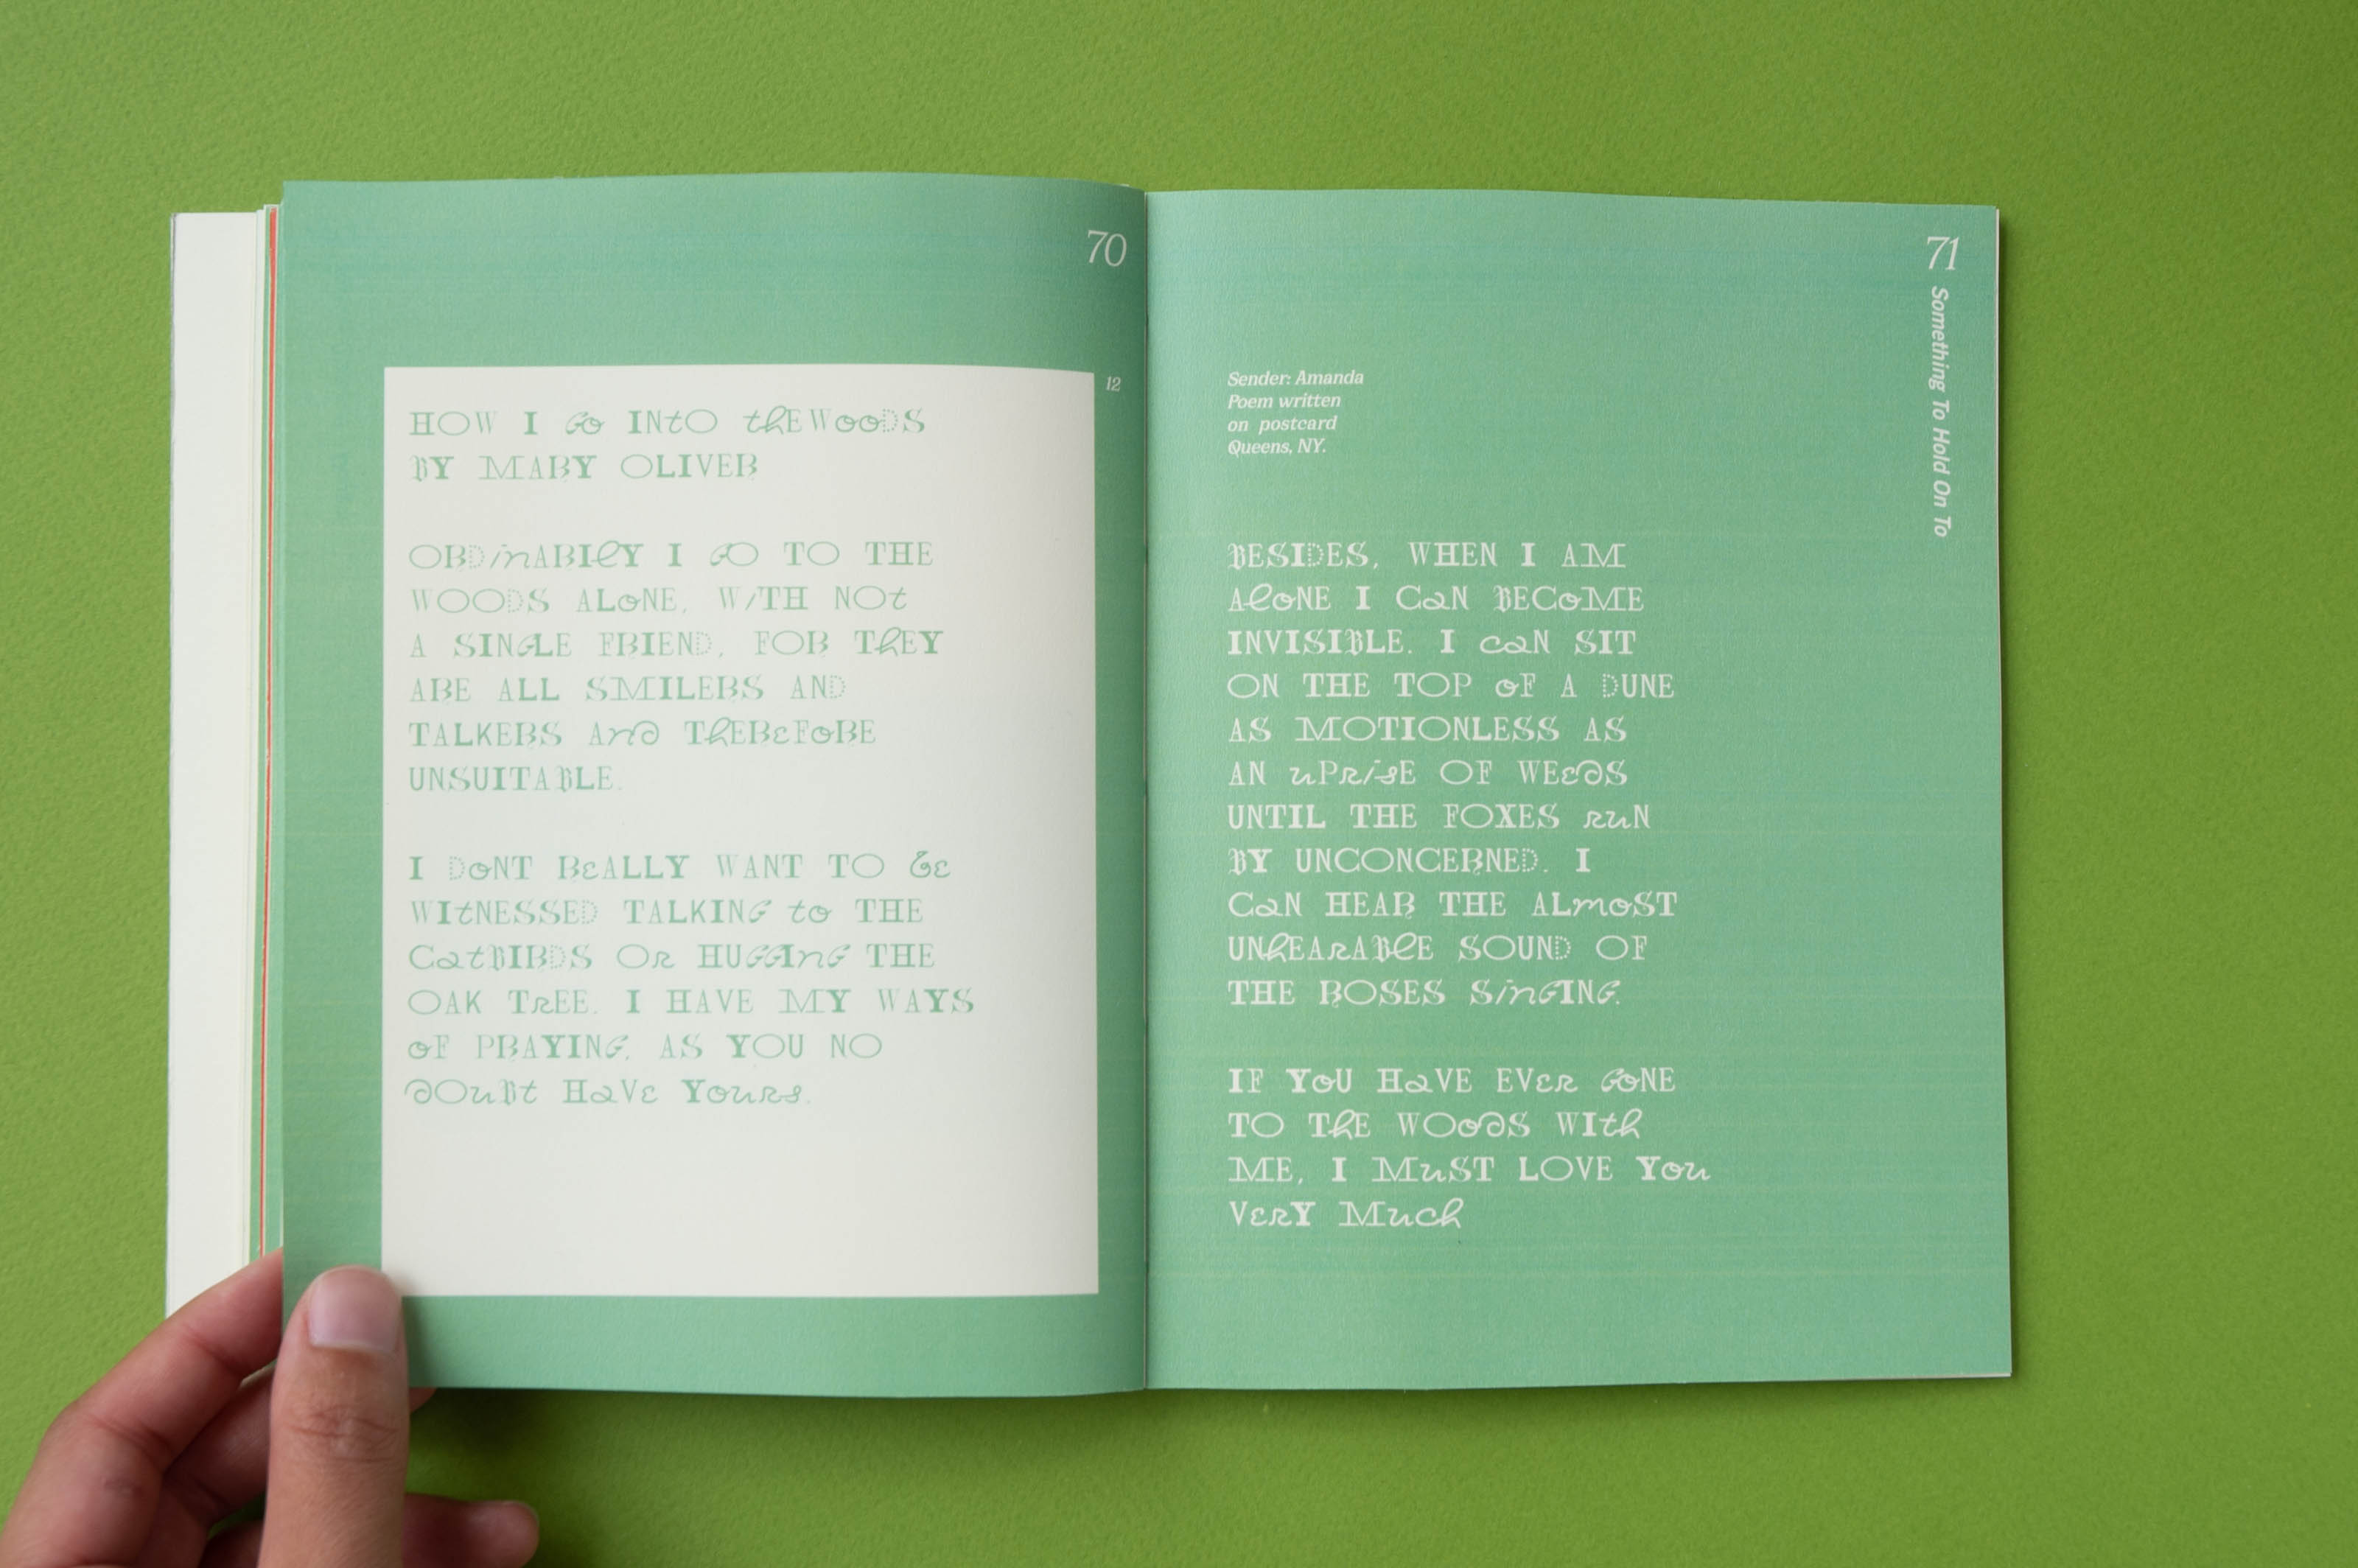 70
12
HOW I Go INtO thE WooDS
BY MARY OLIVER
ORDinARIlY I GO TO THE
WOODS ALoNE, WiTH NOt
A SINGLE FRIEND, FOR ThEY
ARE ALL SMILERS AND
TALKERS And ThEReFoRE
UNSUITABLE.
I DoNT ReALLY WANT TO be
WItNESSED TALKING to THE
CatBIRDS Or HUGGInG THE
OAK TrEE. I HAVE MY WAYS
oF PRAYING, AS YOU NO
dOuBt HaVe Yours.
71
Something To Hold On To
Sender: Amanda
Poem written
on postcard
Queens, NY.
BESIDES, WHEN I AM
AloNE I CaN BECoME
INVISIBLE. I caN SIT
ON THE TOP oF A DUNE
AS MOTIONLESS AS
AN uPrisE OF WEedS
UNTIL THE FOXES ruN
BY UNCONCERNED. I
CaN HEAR THE ALmoST
UNhEArABlE SOUND OF
THE ROSES SinGING.
IF YoU HaVE EVer GoNE
TO ThE WOodS WIth
ME, I MuST LOVE You
VerY Much